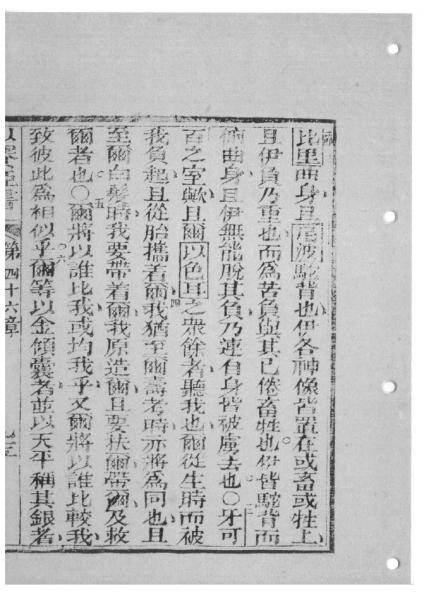 比里曲身且尼波駝背也伊各神像皆置在或畜或牲上
且伊負乃重也而為苦負與其已倦畜牲也伊皆駝背而
倂曲身且伊無能脫其負乃連自身皆被虜去也○牙可
百之室歟且爾以色耳之眾餘者聽我也爾從生時而被
我負起且從胎攜着爾我猶至爾壽考時亦將為同也且
至爾白髮時我要帶着爾我原造爾且要扶爾帶爾及救
爾者也○爾將以誰比我或均我乎又爾將以誰比較我
致彼此為相似乎爾等以金傾囊者並以天平稱其銀者
第四十六章